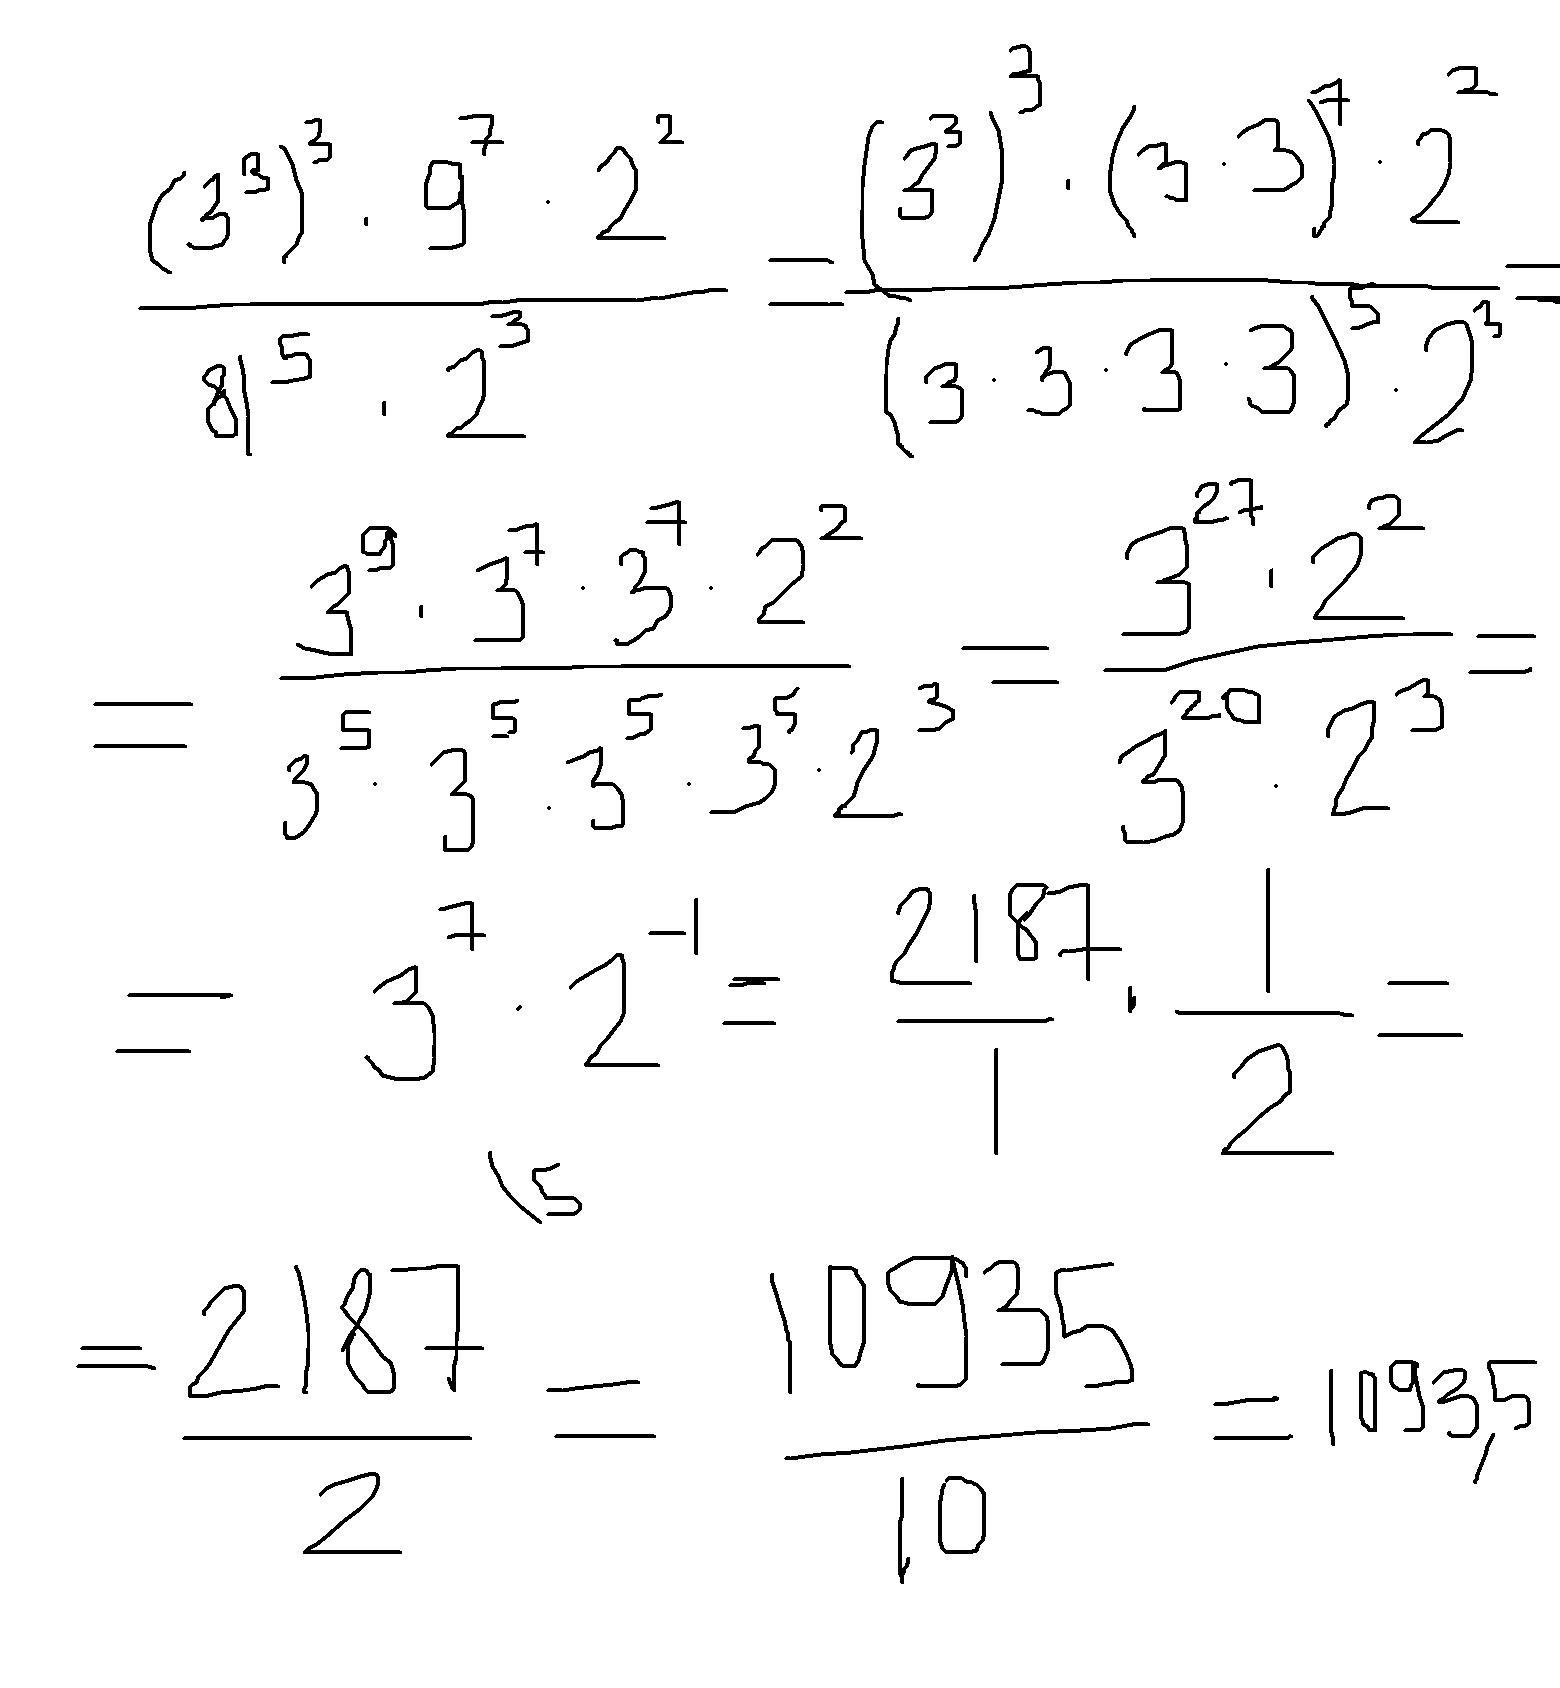 ((3^3)^3 · 9^7 · 2^2) / (81^5 · 2^3) = ((3^3)^3 · (3 · 3)^7 · 2^2) / ((3 · 3 · 3 · 3)^5 · 2^3) =
= (3^9 · 3^7 · 3^7 · 2^2) / (3^5 · 3^5 · 3^5 · 3^5 · 2^3) = (3^27 · 2^2) / (3^20 · 2^3) =
= 3^7 · 2^-1 = 2187/1 · 1/2 =
= 2187/2 \5 = 10935/10 = 1093,5